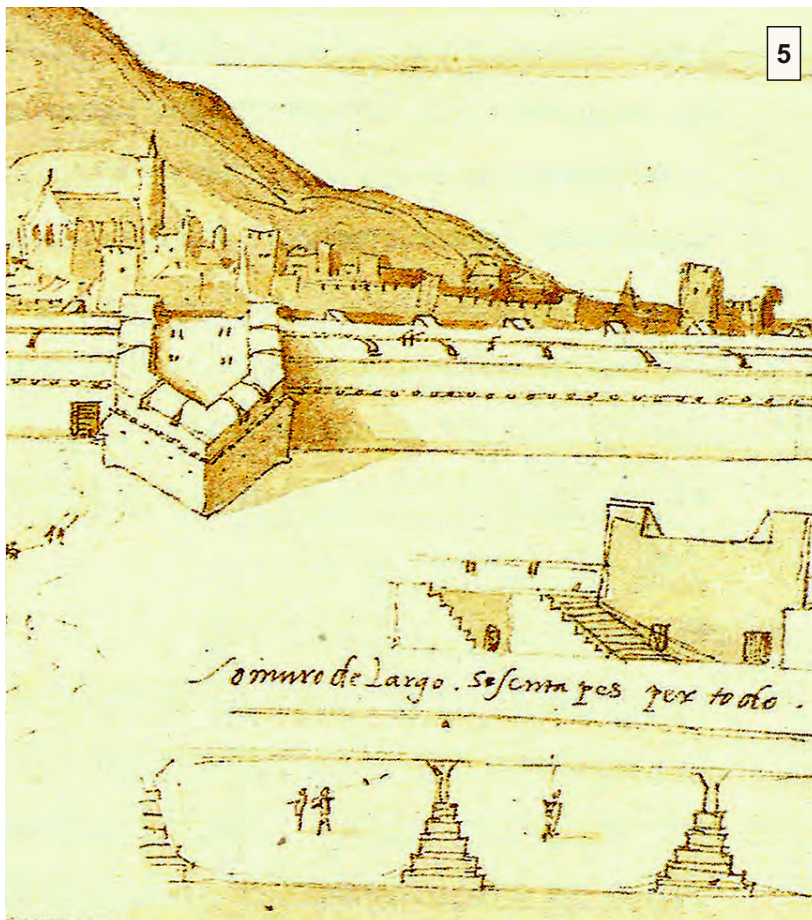 5
o muro de Largo. Sesenta pes per todo.